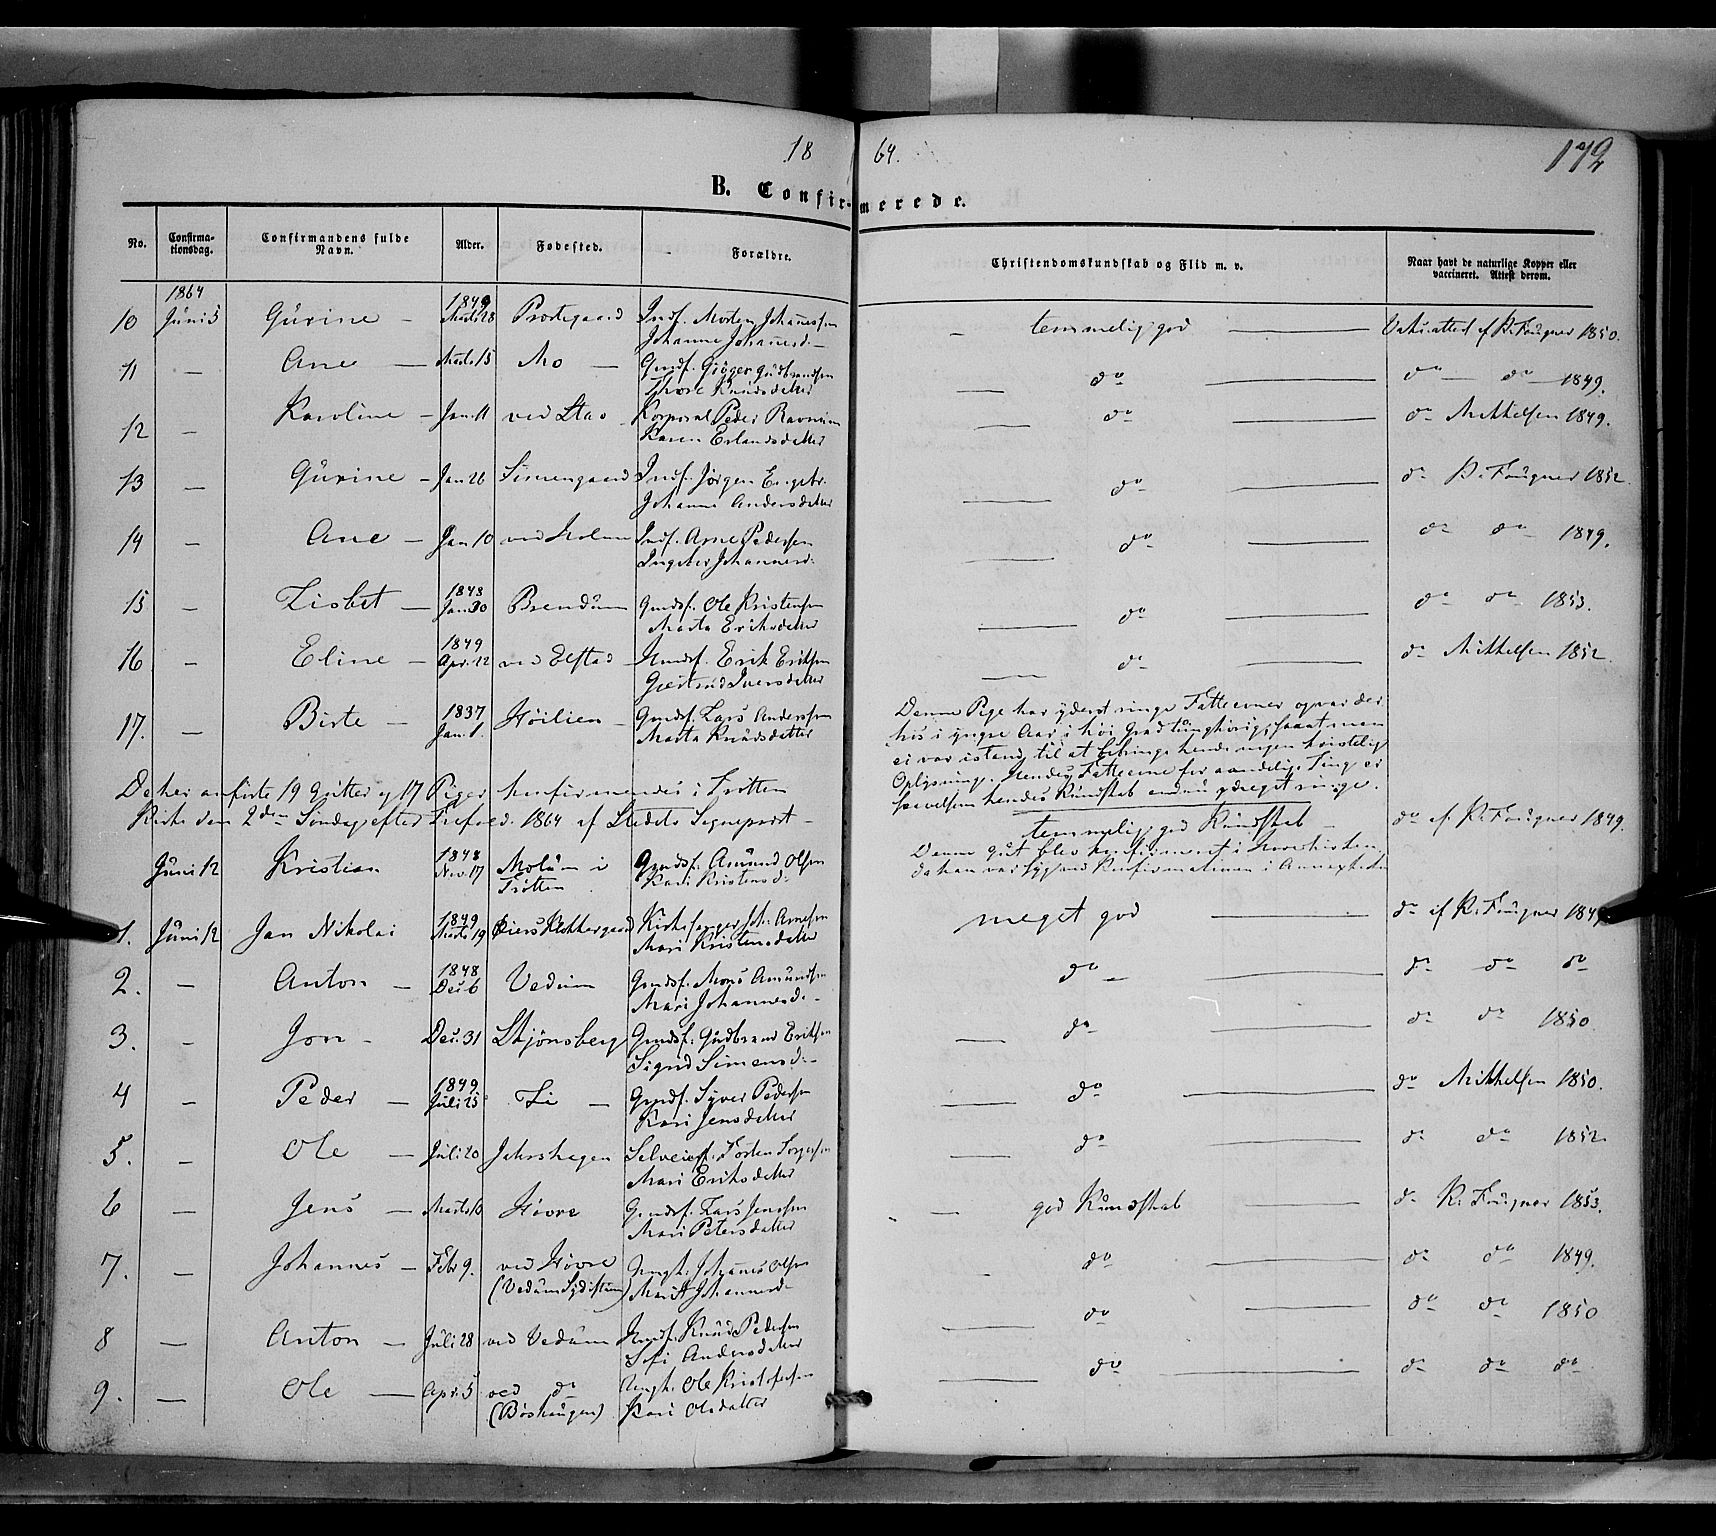 18 64.
172
B. Confirmerede.
No. Confirmationsdag. Confirmandens fulde Navn. Alder. Fødested. Forældre. Christendomskundskab og Flid m. v. Naar havt de naturlige Kopper eller vaccineret. Attest derom.
1864 1849
10 Juni 5 Gurine – Marts 28 Prestegaard Indf. Morten Johannesen temmelig god Vaksattest af K. Fougner 1850.
Johanne Johannesd. –
11 – Ane – Marts 15 Mo – Gmdf. Gudbrandsen do do – do – 1849.
Thore Knudsdatter
12 – Karoline – Jan. 11 ved Stav Korporal Peder do do Mikkelsen 1849.
Karen Erlandsdatter
13 – Gurine – Jan 26 Simengaard Indf. Jørgen Engebr. do do K. Fougner 1852.
Johanne Andersdatter
14 – Ane – Jan 10 ved Holmen Indf. Arne Pedersen do do do 1849.
Ingeber Johannesd.
1848
15 – Lisbet – Jan 30 Brendum Gmdsf. Ole Kristensen do do do 1853.
Marta Eriksdatter
1849
16 – Eline – Apr. 12 ved Elstad Hmdsf. Erik Eriksen do do Mikkelsen 1852.
Gjertrud Iversdatter
1837
17. – Birte – Jan. 1. Høilien – Gmdsf. Lars Andersen
Marta Knudsdatter
Denne Pige har yderst ringe Fatteevner og var der
hos i yngre Aar i høi Grad tunghørig, saaat man
ei var istand til at bibringe hende nogen
Oplysning. Hendes Fatteevne for aandelige Ting er
hendes Kundskab endnu meget ringe.
De her anførte 19 Gutter og 17 Piger konfirmeredes i Tretten
Kirke den 2den Søndag efter Trefold. 1864 af Stedets Sogneprest –
1848 temmelig god Kundskab – do af K. Fougner 1849.
Juni 12 Kristian Nov. 17 Molum i Tretten Gmdsf. Amund Olsen
Kari Kristensd.
Denne Gut blev konfirmeret i Hovedkirken,
da han var syg ved Konfirmationen i Annexkirken
1849
1. Juni 12 Jan Nikolai Marts 19 Øiers Klokkergaard Kirkesanger Joh. Arnesen meget god do af K. Fougner 1849
Mari Kristensdatter
1848
2. – Anton – Dec. 6 Vedum Gmdsf. Mons Amundsen do – do do do
Mari Johannesd. –
3. – Jon – Dec. 31 Stjønsberg Gmdsf. Gudbrand Eriksen do do do 1850
Sigrid Simensd. –
1849
4 – Peder – Juli 25 Li – Gmdsf. Syver Pedersen do do Mikkelsen 1850.
Kari Jensdatter
5. – Ole – Juli 20 Jahrshagen Selveierf. Torsten do do do 1852.
Mari Eriksdatter
6 – Jens – Marts Hovre Gmdsf. Lars Jensen god Kundskab do K. Fougner 1853.
Mari Petersdatter
7. – Johannes – Febr. 9. ved Hovre Ungk. Johannes Olsen do do do 1849.
(Vedum) Marit Johannesd.
8 – Anton – Juli 28 ved Vedum Hmdsf. Knud Pedersen do do do 1850
Sofi Andersdatter
9. – Ole – Apr. 5 ved do Ungk. Ole Kristofersen do do do do
(Bøshaugen) Kari Olsdatter